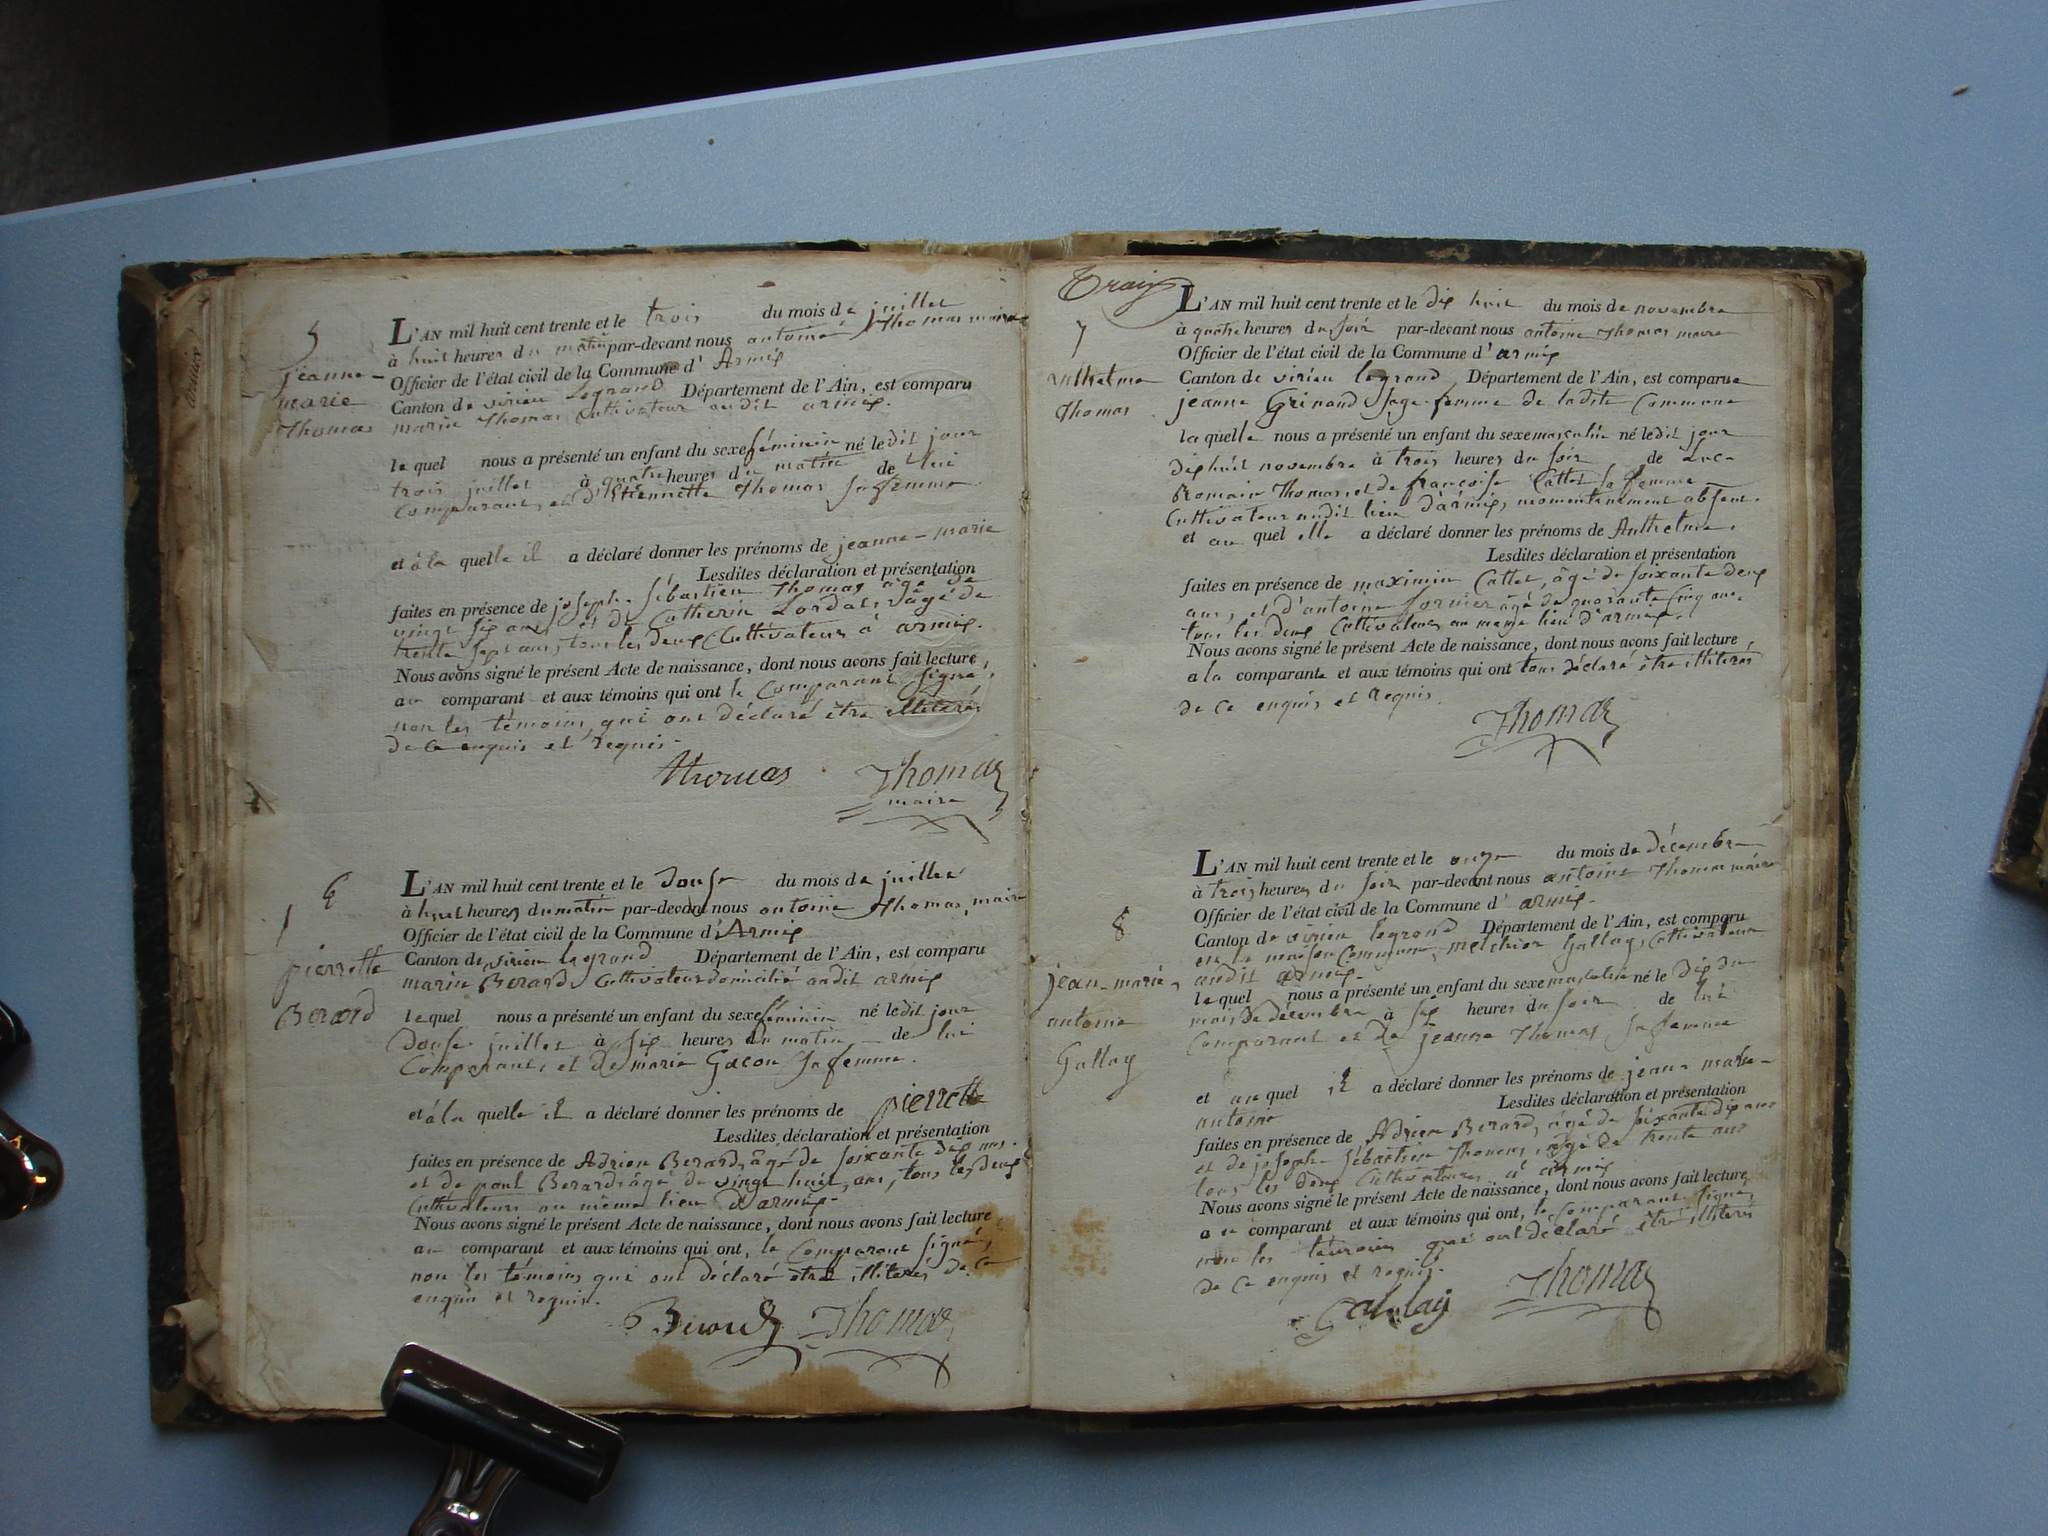 5
jeanne-
marie
Thomas
L'AN mil huit cent trente et le trois du mois de juillet
à huit heures du matin par-devant nous antoine Thomas maire
Officier de l'état civil de la Commune d' Armix
Canton de virieu legrand Département de l'Ain, est comparu
marin Thomas Cultivateur audit armix.
le quel nous a présenté un enfant du sexe féminin né ledit jour
trois juillet à quatre heures du matin de lui
Comparant, et d'Etiennette Thomas sa femme
et à la quelle il a déclaré donner les prénoms de jeanne-marie
Lesdites déclaration et présentation
faites en présence de joseph-Sébastien Thomas âgé de
vingt six ans, et de Catherin Lordat, âgé de
trente sept ans, tous les deux Cultivateurs à armix.
Nous avons signé le présent Acte de naissance, dont nous avons fait lecture,
au comparant et aux témoins qui ont le Comparant signé,
non les témoins, qui ont déclaré être illiterés
de ce enquis et requis-
thomas Thomas
maire
6
pierrette
Berard
L'AN mil huit cent trente et le douse du mois de juillet
à huit heures du matin par-devant nous antoine Thomas, maire
Officier de l'état civil de la Commune d'Armix
Canton de virieu legrand Département de l'Ain, est comparu
marin Berard, Cultivateur domicilié audit armix
le quel nous a présenté un enfant du sexe féminin né ledit jour
douse juillet à six heures du matin de lui
Comparant, et de marie Gacon sa femme.
et à la quelle il a déclaré donner les prénoms de pierrette
Lesdites déclaration et présentation
faites en présence de Adrien Berard, âgé de soixante dix ans.
et de paul Berard, âgé de vingt huit, ans, tous les deux
Cultivateurs au même lieu d'armix-
Nous avons signé le présent Acte de naissance, dont nous avons fait lecture
au comparant et aux témoins qui ont, le Comparant signé,
non les témoins qui ont déclaré être illiterés de ce
enquis et requis.
Berard Thomas
7
anthelme
Thomas
L'AN mil huit cent trente et le dix huit du mois de novembre
à quatre heures du soir par-devant nous antoine Thomas maire
Officier de l'état civil de la Commune d' armix
Canton de virieu legrand Département de l'Ain, est comparue
jeanne Grinand sage-femme de ladite Commune
la quelle nous a présenté un enfant du sexe masculin né ledit jour
dixhuit novembre à trois heures du soir de Luc-
Romain Thomas, et de françoise Cattet sa femme
Cultivateur audit lieu d'armix, momentanement absent.
et au quel elle a déclaré donner les prénoms de Anthelme.
Lesdites déclaration et présentation
faites en présence de maximin Cattet, âgé de soixante deux
ans, et d'antoine fornier âgé de quarante cinq ans,
tous les deux Cultivateurs au meme lieu d'armix.
Nous avons signé le présent Acte de naissance, dont nous avons fait lecture,
a la comparante et aux témoins qui ont tous déclaré être illiterés
de ce enquis et requis.
Thomas
8
jean-marie-
antoine
Gallay
L'AN mil huit cent trente et le onze du mois de décembre
à trois heures du soir par-devant nous antoine Thomas maire
Officier de l'état civil de la Commune d' armix-
Canton de virieu legrand Département de l'Ain, est comparu
en la maison Commune, melchior Gallay, Cultivateur
audit armix-
le quel nous a présenté un enfant du sexe masculin né le dix du
mois de décembre à six heures du soir de lui
Comparant et de jeanne Thomas sa femme
et au quel il a déclaré donner les prénoms de jean-marie-
antoine Lesdites déclaration et présentation
faites en présence de Adrien Berard, âgé de soixante dix ans
et de joseph-Sébastien Thomas, âgé de trente ans
tous les deux Cultivateurs à armix
Nous avons signé le présent Acte de naissance, dont nous avons fait lecture,
au comparant et aux témoins qui ont, le Comparant signé,
non les temoins qui ont déclaré être illiterés
de ce enquis et requis.
Gallay Thomas